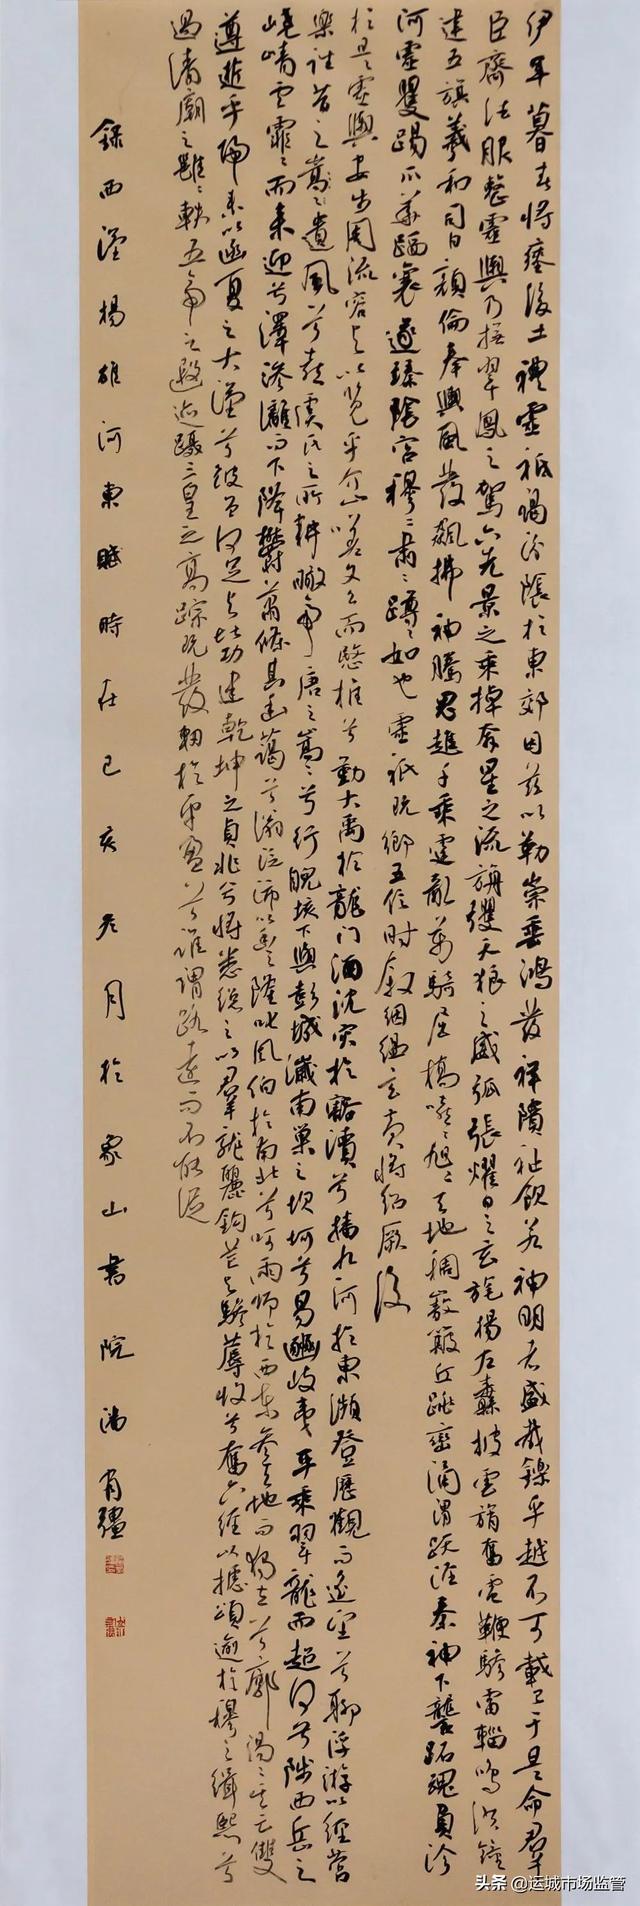 伊年暮春將瘞後土禮靈祇謁汾陰於東郊因茲以勒崇垂鴻發祥隤祉欽若神明者盛哉鑠乎越不可載已于是命群
臣齊法服整靈輿乃撫翠鳳之駕六先景之乘掉奔星之流旃彏天狼之威弧張耀日之玄旄楊左纛被雲旓奮電鞭驂雷輜鳴洪鐘
建五旗羲和司日顏倫奉輿風發飆拂神騰鬼趡千乘霆亂萬騎屈橋嘻嘻旭旭天地稠嶅簸丘跳巒涌渭躍涇秦神下讋跖魂負沴
河靈矍踢爪華蹈衰遂臻陰宮穆穆肅肅蹲蹲如也靈祇既鄉五位時敘絪縕玄黃將紹厥後
於是靈輿安步周流容與以覽乎介山嗟文公而愍推兮勤大禹於龍門洒沈災於豁瀆兮播九河於東瀕登歷觀而遙望兮聊浮游以經營
樂往昔之嵩嵩遺風兮喜虞氏之所耕瞰帝唐之嵩嵩兮行睨垓下與彭城濊南巢之坎坷兮易豳岐夷平乘翠龍而超河兮陟西岳之
嶢崝雲霏霏而來迎兮澤滲灕而下降鬱蕭條其幽藹兮滃泛沛以豐隆叱風伯於南北兮呵雨師於西東參天地而獨立兮廓蕩蕩其亡雙
遵逝乎歸來以函夏之大漢兮彼曾何足與比功建乾坤之貞兆兮將悉總之以群龍麗鉤芒與驂蓐收兮奮六經以攄頌逾於穆之緝熙兮
過清廟之雝雝軼五帝之遐迹躡三皇之高踪既發軔於平盈兮誰謂路遠而不能從
錄西漢楊雄河東賦時在己亥冬月於象山書院湯肖疆
头条 @运城市场监管